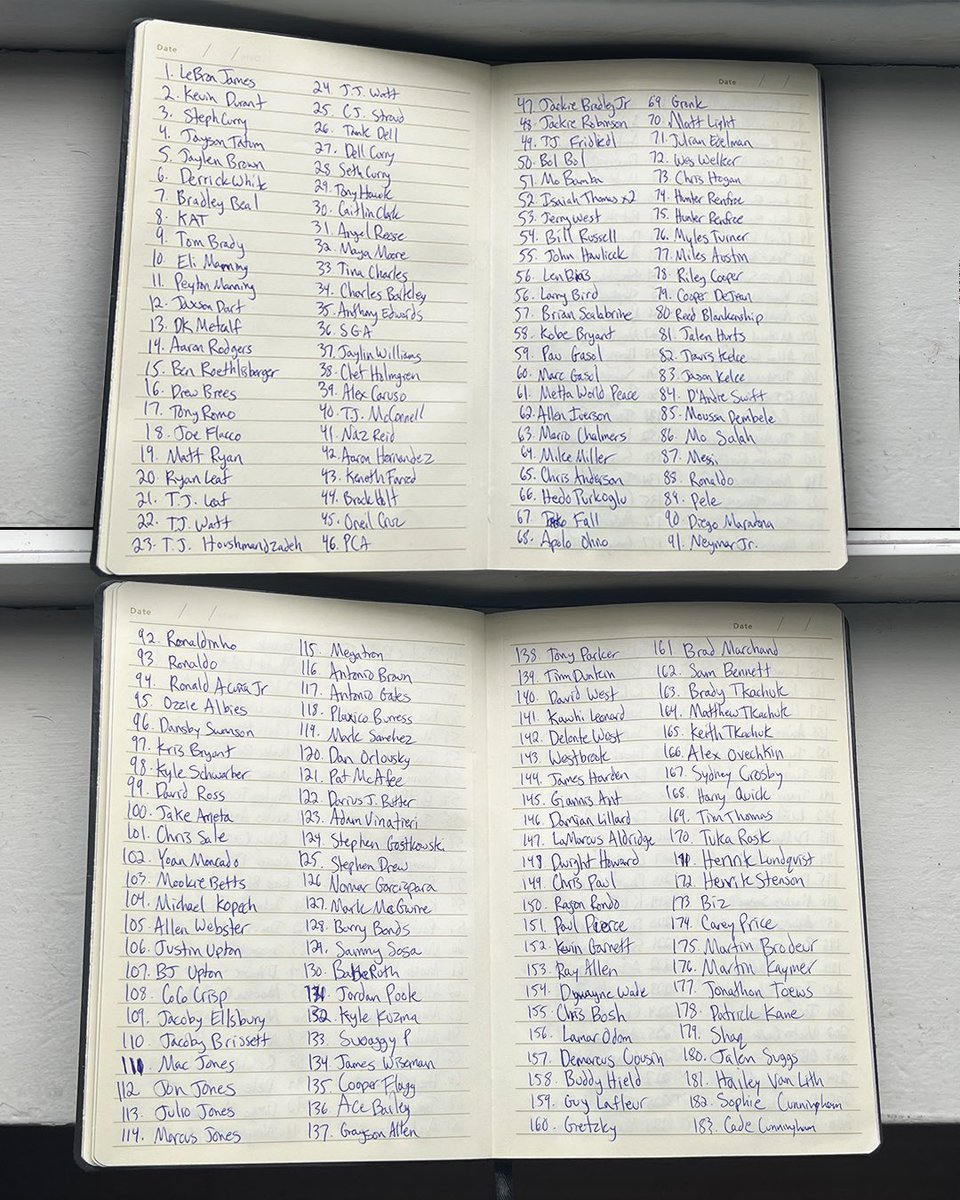 Date / /
1. LeBron James
2. Kevin Durant
3. Steph Curry
4. Jayson Tatum
5. Jaylen Brown
6. Derrick White
7. Bradley Beal
8. KAT
9. Tom Brady
10. Eli Manning
11. Peyton Manning
12. Jaxson Dart
13. DK Metcalf
14. Aaron Rodgers
15. Ben Roethlisberger
16. Drew Brees
17. Tony Romo
18. Joe Flacco
19. Matt Ryan
20. Ryan Leaf
21. T.J. Leaf
22. T.J. Watt
23. T.J. Houshmandzadeh
24 J.J. Watt
25. C.J. Stroud
26. Tank Dell
27. Dell Curry
28 Seth Curry
29. Tony Hawk
30. Caitlin Clark
31 Angel Reese
32. Maya Moore
33 Tina Charles
34. Charles Barkley
35. Anthony Edwards
36 SGA
37. Jaylin Williams
38. Chet Holmgren
39. Alex Caruso
40. T.J. McConnell
41. Naz Reid
42. Aaron Hernandez
43. Keneth Faried
44. Brock Holt
45. Oneil Cruz
46. PCA
Date / /
47. Jackie Bradley Jr
48. Jackie Robinson
49. TJ Fridkdl
50. Bol Bol
51. Mo Bamba
52. Isaiah Thomas x2
53. Jerry West
54. Bill Russell
55. John Havlicek
56. Len Bias
56. Larry Bird
57. Brian Scalabrine
58. Kobe Bryant
59. Pau Gasol
60. Marc Gasol
61. Metta World Peace
62. Allen Iverson
63. Mario Chalmers
64. Mike Miller
65. Chris Anderson
66. Hedo Turkoglu
67. Fall
68. Apolo Ohno
69. Gronk
70. Matt Light
71. Julian Edelman
72. Wes Welker
73 Chris Hogan
74. Hunter Renfroe
75. Hunter Renfroe
76. Myles Turner
77. Miles Austin
78. Riley Cooper
79. Cooper DeJean
80 Reed Blankenship
81. Jalen Hurts
82. Travis Kelce
83. Jason Kelce
84. D'Andre Swift
85. Moussa Dembele
86. Mo Salah
87. Messi
88. Ronaldo
89. Pele
90. Diego Maradona
91. Neymar Jr.
Date / /
92. Ronaldinho
93 Ronaldo
94. Ronald Acuña Jr
95. Ozzie Albies
96. Dansby Swanson
97. Kris Bryant
98. Kyle Schwarber
99. David Ross
100. Jake Arrieta
101. Chris Sale
102. Yoan Moncado
103. Mookie Betts
104. Michael Kopech
105. Allen Webster
106. Justin Upton
107. BJ Upton
108. CoCo Crisp
109. Jacoby Ellsbury
110. Jacoby Brissett
111 Mac Jones
112. Jon Jones
113. Julio Jones
114. Marcus Jones
115. Megatron
116 Antonio Brown
117. Antonio Gates
118. Plaxico Burress
119. Mark Sanchez
120. Dan Orlovsky
121. Pat McAfee
122. Darius J. Butler
123. Adam Vinatieri
124. Stephen Gostkowski
125. Stephen Drew
126 Nomar Garciapara
127. Mark McGwire
128. Barry Bonds
129. Sammy Sosa
130. Babe Ruth
131. Jordan Poole
132. Kyle Kuzma
133 Swaggy P
134. James Wiseman
135 Cooper Flagg
136. Ace Bailey
137. Grayson Allen
Date / /
138. Tony Parker
139. Tim Duncan
140. David West
141. Kawhi Leonard
142. Delonte West
143. Westbrook
144. James Harden
145. Giannis Ant
146. Damian Lillard
147. LaMarcus Aldridge
148 Dwight Howard
149. Chris Paul
150. Rajon Rondo
151. Paul Pierce
152 Kevin Garnett
153. Ray Allen
154. Dwayne Wade
155. Chris Bosh
156. Lamar Odom
157. Demarcus Cousin
158. Buddy Hield
159. Guy Lafleur
160. Gretzky
161. Brad Marchand
162. Sam Bennett
163. Brady Tkachuk
164. Matthew Tkachuk
165. Keith Tkachuk
166. Alex Ovechkin
167. Sydney Crosby
168. Harry Quick
169. Tim Thomas
170. Tuka Rask
171. Henrik Lundqvist
172. Henrik Stenson
173 Biz
174. Carey Price
175. Martin Brodeur
176. Martin Kaymer
177. Jonathon Toews
178. Patrick Kane
179. Shaq
180. Jalen Suggs
181. Hailey Van Lith
182. Sophie Cunningham
183. Cade Cunningham